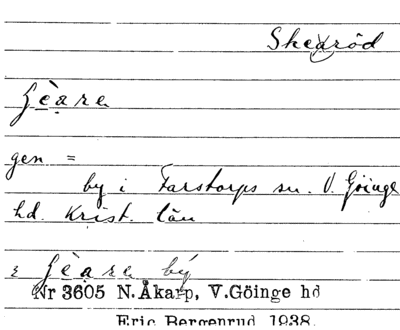 Skearöd
gen =
by i Farstorps sn. V. Göinge
hd. Krist. län
by
Nr 3605 N. Åkarp, V.Göinge hd
Eric Bergenrud 1938.